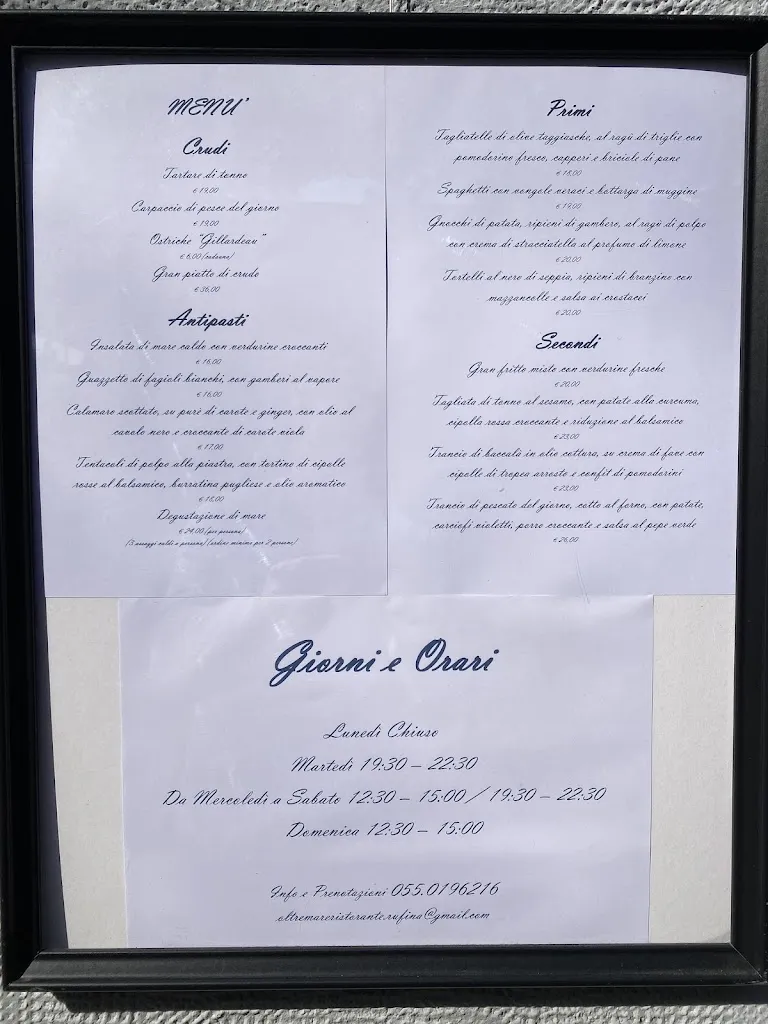 MENU'
Crudi
Tartare di tonno
€ 19,00
Carpaccio di pesce del giorno
€ 19,00
Ostriche "Gillardeau"
€ 6,00 (cadauna)
Gran piatto di crudo
€ 36,00
Antipasti
Insalata di mare calda con verdurine croccanti
€ 16,00
Guazzetto di fagioli bianchi, con gamberi al vapore
€ 16,00
Calamaro scottato, su purè di carote e ginger, con olio al
cavolo nero e croccante di carote viola
€ 17,00
Tentacoli di polpo alla piastra, con tortino di cipolle
rosse al balsamico, burratina pugliese e olio aromatico
€ 18,00
Degustazione di mare
€ 24,00 (per persona)
(3 assaggi caldi a persona) (ordine minimo per 2 persone)
Primi
Tagliatelle di olive taggiasche, al ragù di triglie con
pomodorino fresco, capperi e briciole di pane
€ 18,00
Spaghetti con vongole veraci e bottarga di muggine
€ 19,00
Gnocchi di patata, ripieni di gambero, al ragù di polpo
con crema di stracciatella al profumo di limone
€ 20,00
Tortelli al nero di seppia, ripieni di branzino con
mazzancolle e salsa ai crostacei
€ 20,00
Secondi
Gran fritto misto con verdurine fresche
€ 20,00
Tagliata di tonno al sesamo, con patate alla curcuma,
cipolla rossa croccante e riduzione al balsamico
€ 23,00
Trancio di baccalà in olio cottura, su crema di fave con
cipolle di tropea arrosto e confit di pomodorini
€ 23,00
Trancio di pescato del giorno, cotto al forno, con patate,
carciofi violetti, porro croccante e salsa al pepe verde
€ 26,00
Giorni e Orari
Lunedì Chiuso
Martedì 19:30 – 22:30
Da Mercoledì a Sabato 12:30 – 15:00 / 19:30 – 22:30
Domenica 12:30 – 15:00
Info e Prenotazioni 055.0196216
oltremareristorante.rufina@gmail.com